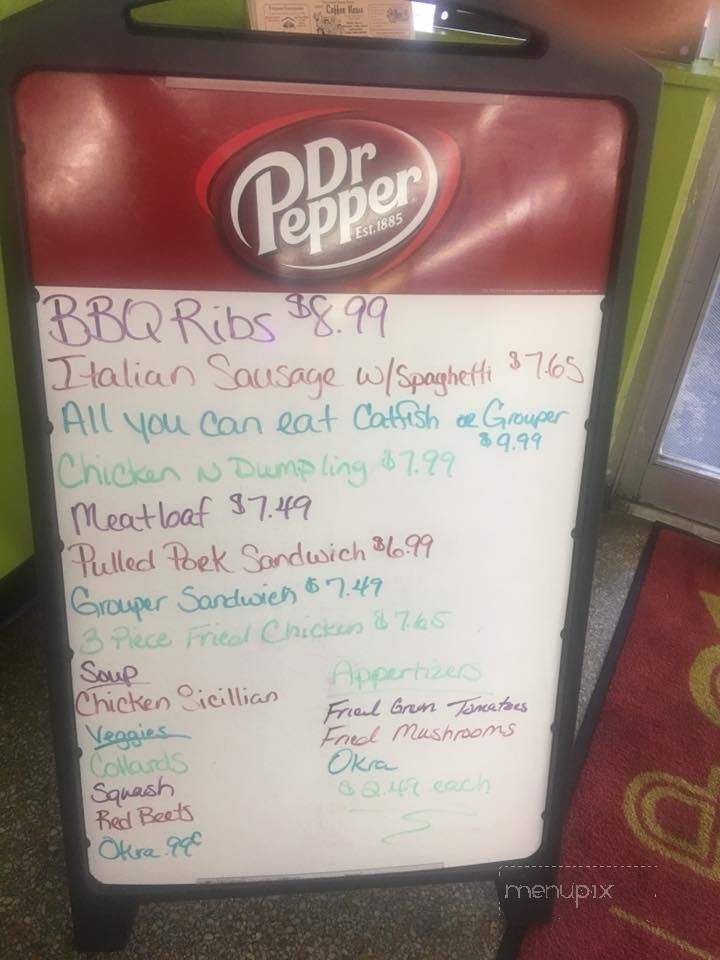 Coffee News
Dr
Pepper
Est.1885
BBQ Ribs $8.99
Italian Sausage w/Spaghetti $7.65
All you can eat Catfish or Grouper
$9.99
Chicken N Dumpling $7.99
Meatloaf $7.49
Pulled Pork Sandwich $6.99
Grouper Sandwich $7.49
3 Piece Fried Chicken $7.65
Soup
Chicken Sicillian
Veggies
Collards
Squash
Red Beets
Okra .99¢
Appertizers
Fried Green Tomatoes
Fried Mushrooms
Okra
$2.49 each
menupix